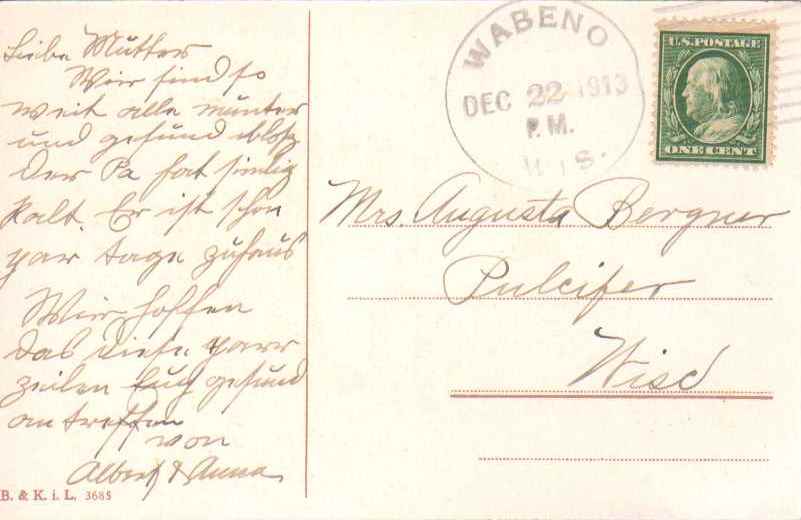 Liebe Mutter
Wier sind so
weit alle munter
und gesund blos
Der Pa hat zimlig
kalt. Er ist schon
par tage zuhaus
Wier hoffen
das diese parr
zeilen Euch gesund
antreffen
von
Albert & Anna
B. & K. i. L. 3685
WABENO
DEC 22 1913
P.M.
WIS.
U.S. POSTAGE
ONE CENT
Mrs. Augusta Bergner
Pulcifer
Wisc